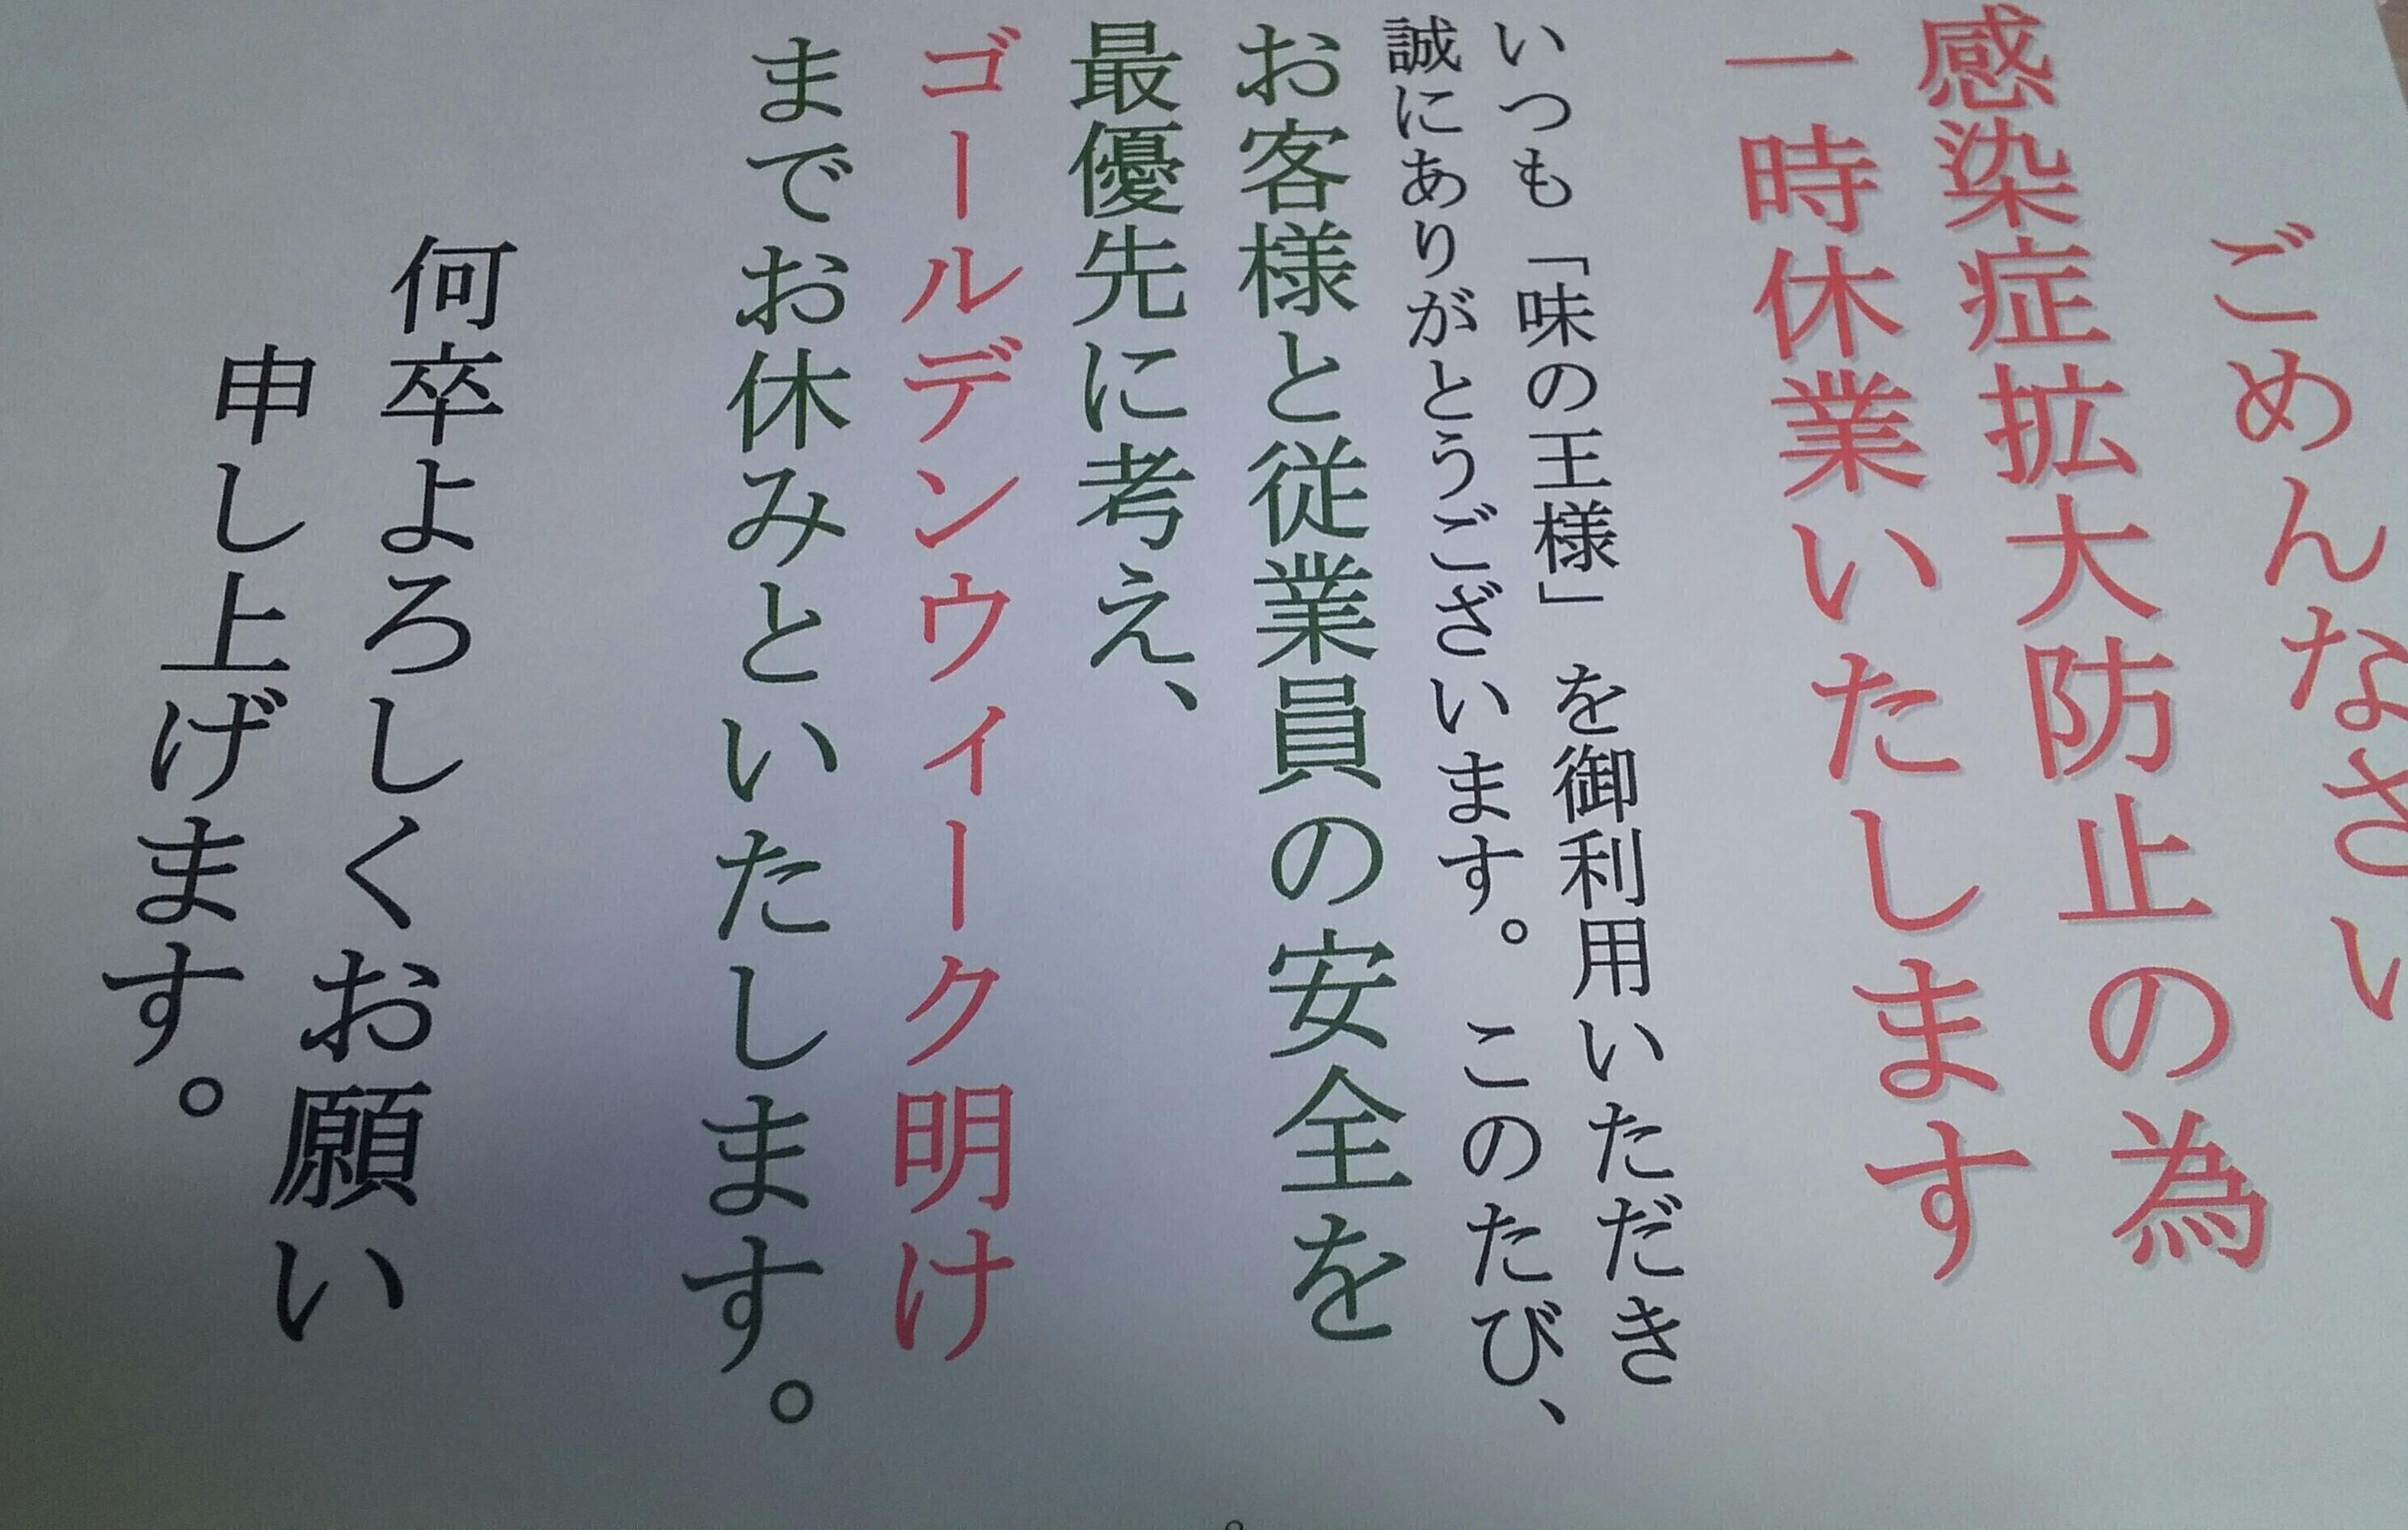 ごめんなさい
感染症拡大防止の為
一時休業いたします
いつも「味の王様」を御利用いただき
誠にありがとうございます。このたび、
お客様と従業員の安全を
最優先に考え、
ゴールデンウィーク明け
までお休みといたします。
何卒よろしくお願い
申し上げます。